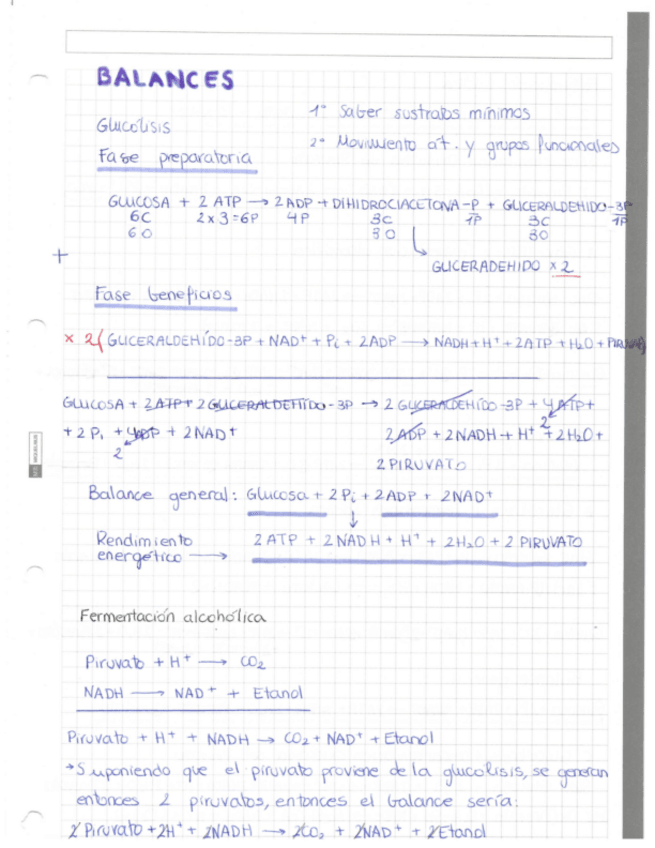 BALANCES
Glucólisis
1º Saber sustratos mínimos
Fase preparatoria
2º Movimiento át. y grupos funcionales
GLUCOSA + 2 ATP → 2 ADP + DIHIDROCIACETONA-P + GLICERALDEHIDO-3P
6C 2x3=6P 4P 3C 1P 3C 1P
6O 3O 3O
+
GLICERADEHIDO x 2
Fase beneficios
x 2( GLICERALDEHÍDO-3P + NAD+ + Pi + 2ADP → NADH + H+ + 2ATP + H2O + PIRUVATO)
GLUCOSA + 2ATP + 2 GLICERALDEHÍDO-3P → 2 GLICERALDEHÍDO-3P + 4ATP +
+ 2 Pi + 4ADP + 2NAD+ 2ADP + 2NADH + H+ + 2H2O +
2 2
2 PIRUVATO
Balance general: Glucosa + 2 Pi + 2 ADP + 2NAD+
↓
Rendimiento 2 ATP + 2 NADH + H+ + 2H2O + 2 PIRUVATO
energético →
Fermentación alcohólica
Piruvato + H+ → CO2
NADH → NAD+ + Etanol
Piruvato + H+ + NADH → CO2 + NAD+ + Etanol
→ Suponiendo que el piruvato proviene de la glucolisis, se generan
entonces 2 piruvatos, entonces el balance sería:
2 Piruvato + 2H+ + 2NADH → 2CO2 + 2NAD+ + 2Etanol